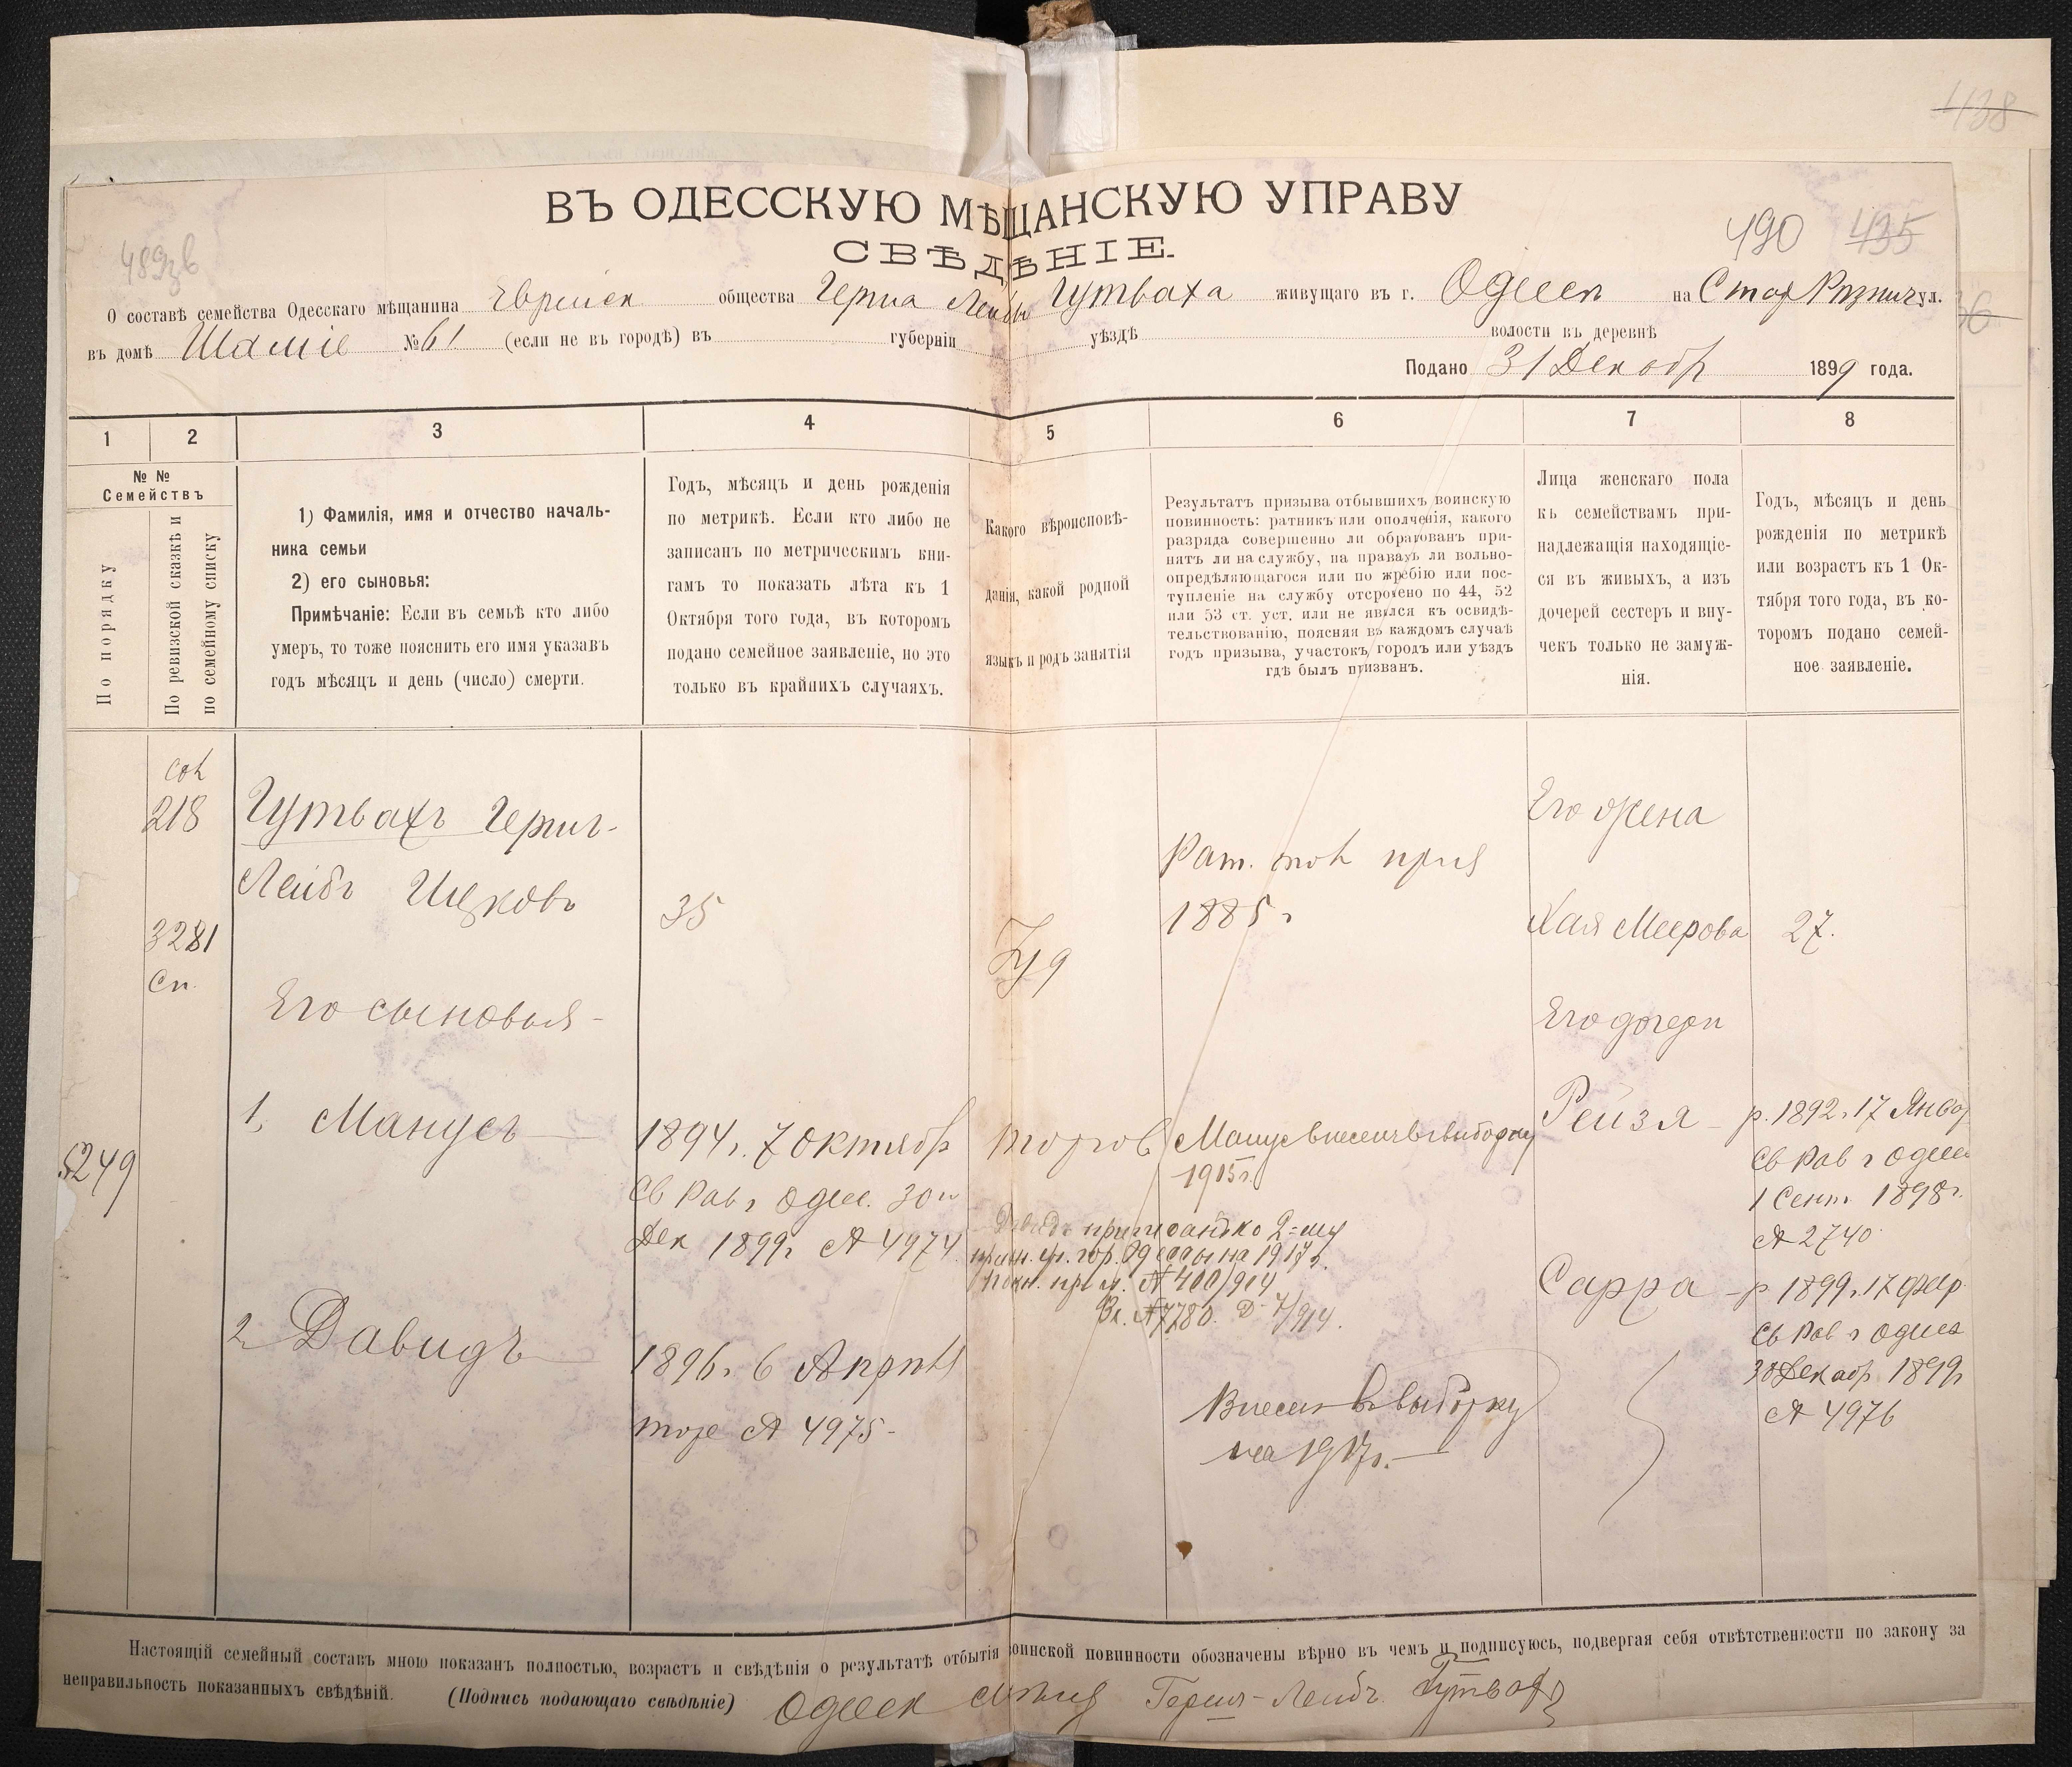 438
ВЪ ОДЕССКУЮ МѢЩАНСКУЮ УПРАВУ
490 435
СВѢДѢНІЕ.
О составѣ семейства Одесскаго мѣщанина Еврейск общества Герша Лейбы Гутваха живущаго въ г. Одесск на Стар Рѣзнич ул.
въ домѣ № 61 (если не въ городѣ) въ губерніи уѣздѣ волости въ деревнѣ
Подано 31 Декабр 1899 года.
1 2 3 4 5 6 7 8
№ №
Семействъ
По порядку
По ревизской сказкѣ и
по семейному списку
1) Фамилія, имя и отчество началь-
ника семьи
2) его сыновья:
Примѣчаніе: Если въ семьѣ кто либо
умеръ, то тоже пояснить его имя указавъ
годъ мѣсяцъ и день (число) смерти.
Годъ, мѣсяцъ и день рожденія
по метрикѣ. Если кто либо не
записанъ по метрическимъ кни-
гамъ то показать лѣта къ 1
Октября того года, въ которомъ
подано семейное заявленіе, но это
только въ крайнихъ случаяхъ.
Какого вѣроисповѣ-
данія, какой родной
языкъ и родъ занятія
Результатъ призыва отбывшихъ воинскую
повинность: ратникъ или ополченія, какого
разряда совершенно ли обракованъ при-
нятъ ли на службу, на правахъ ли вольно-
опредѣляющагося или по жребію или пос-
тупленіе на службу отсрочено по 44, 52
или 53 ст. уст. или не явился къ освидѣ-
тельствованію, поясняя въ каждомъ случаѣ
годъ призыва, участокъ городъ или уѣздъ
гдѣ былъ призванъ.
Лица женскаго пола
къ семействамъ при-
надлежащія находящіе-
ся въ живыхъ, а изъ
дочерей сестеръ и вну-
чекъ только не замуж-
нія.
Годъ, мѣсяцъ и день
рожденія по метрикѣ
или возрастъ къ 1 Ок-
тября того года, въ ко-
торомъ подано семей-
ное заявленіе.
218
3281
Сп.
5249
Гутвахъ Гершъ-
Лейбъ Ицковъ
35
Іуд
Рат. приз
1885 г
Его жена
Хая Меерова 27.
Его сыновья-
Его дочери
1, Манусъ
1894 г. 7 Октябр
Св Рав г Одес. 30го
Дек 1899 г № 4974
торгов
Манус внесенъ въ выборку
1915 г.
Давидъ приписанъ ко 2-му
приз. уч. гор. Одессы на 1917 г.
№ 400/914
Вх. № 7780
Рейзя - р. 1892 г. 17 Январ
Св Рав г Одесс
1 Сент. 1898 г.
№ 2740
Сарра - р 1899 г. 17 февр
Св Рав г Одесс
30 Декабр 1899 г
№ 4976
2 Давидъ
1896 г. 6 Апрѣля
тоже № 4975-
Внесен в выборку
на 1917 г.
Настоящій семейный составъ мною показанъ полностью, возрастъ и свѣдѣнія о результатѣ отбытія воинской повинности обозначены вѣрно въ чемъ и подписуюсь, подвергая себя отвѣтственности по закону за
неправильность показанныхъ свѣдѣній. (Подпись подающаго свѣдѣніе) Одесск Гершъ-Лейбъ Гутвахъ